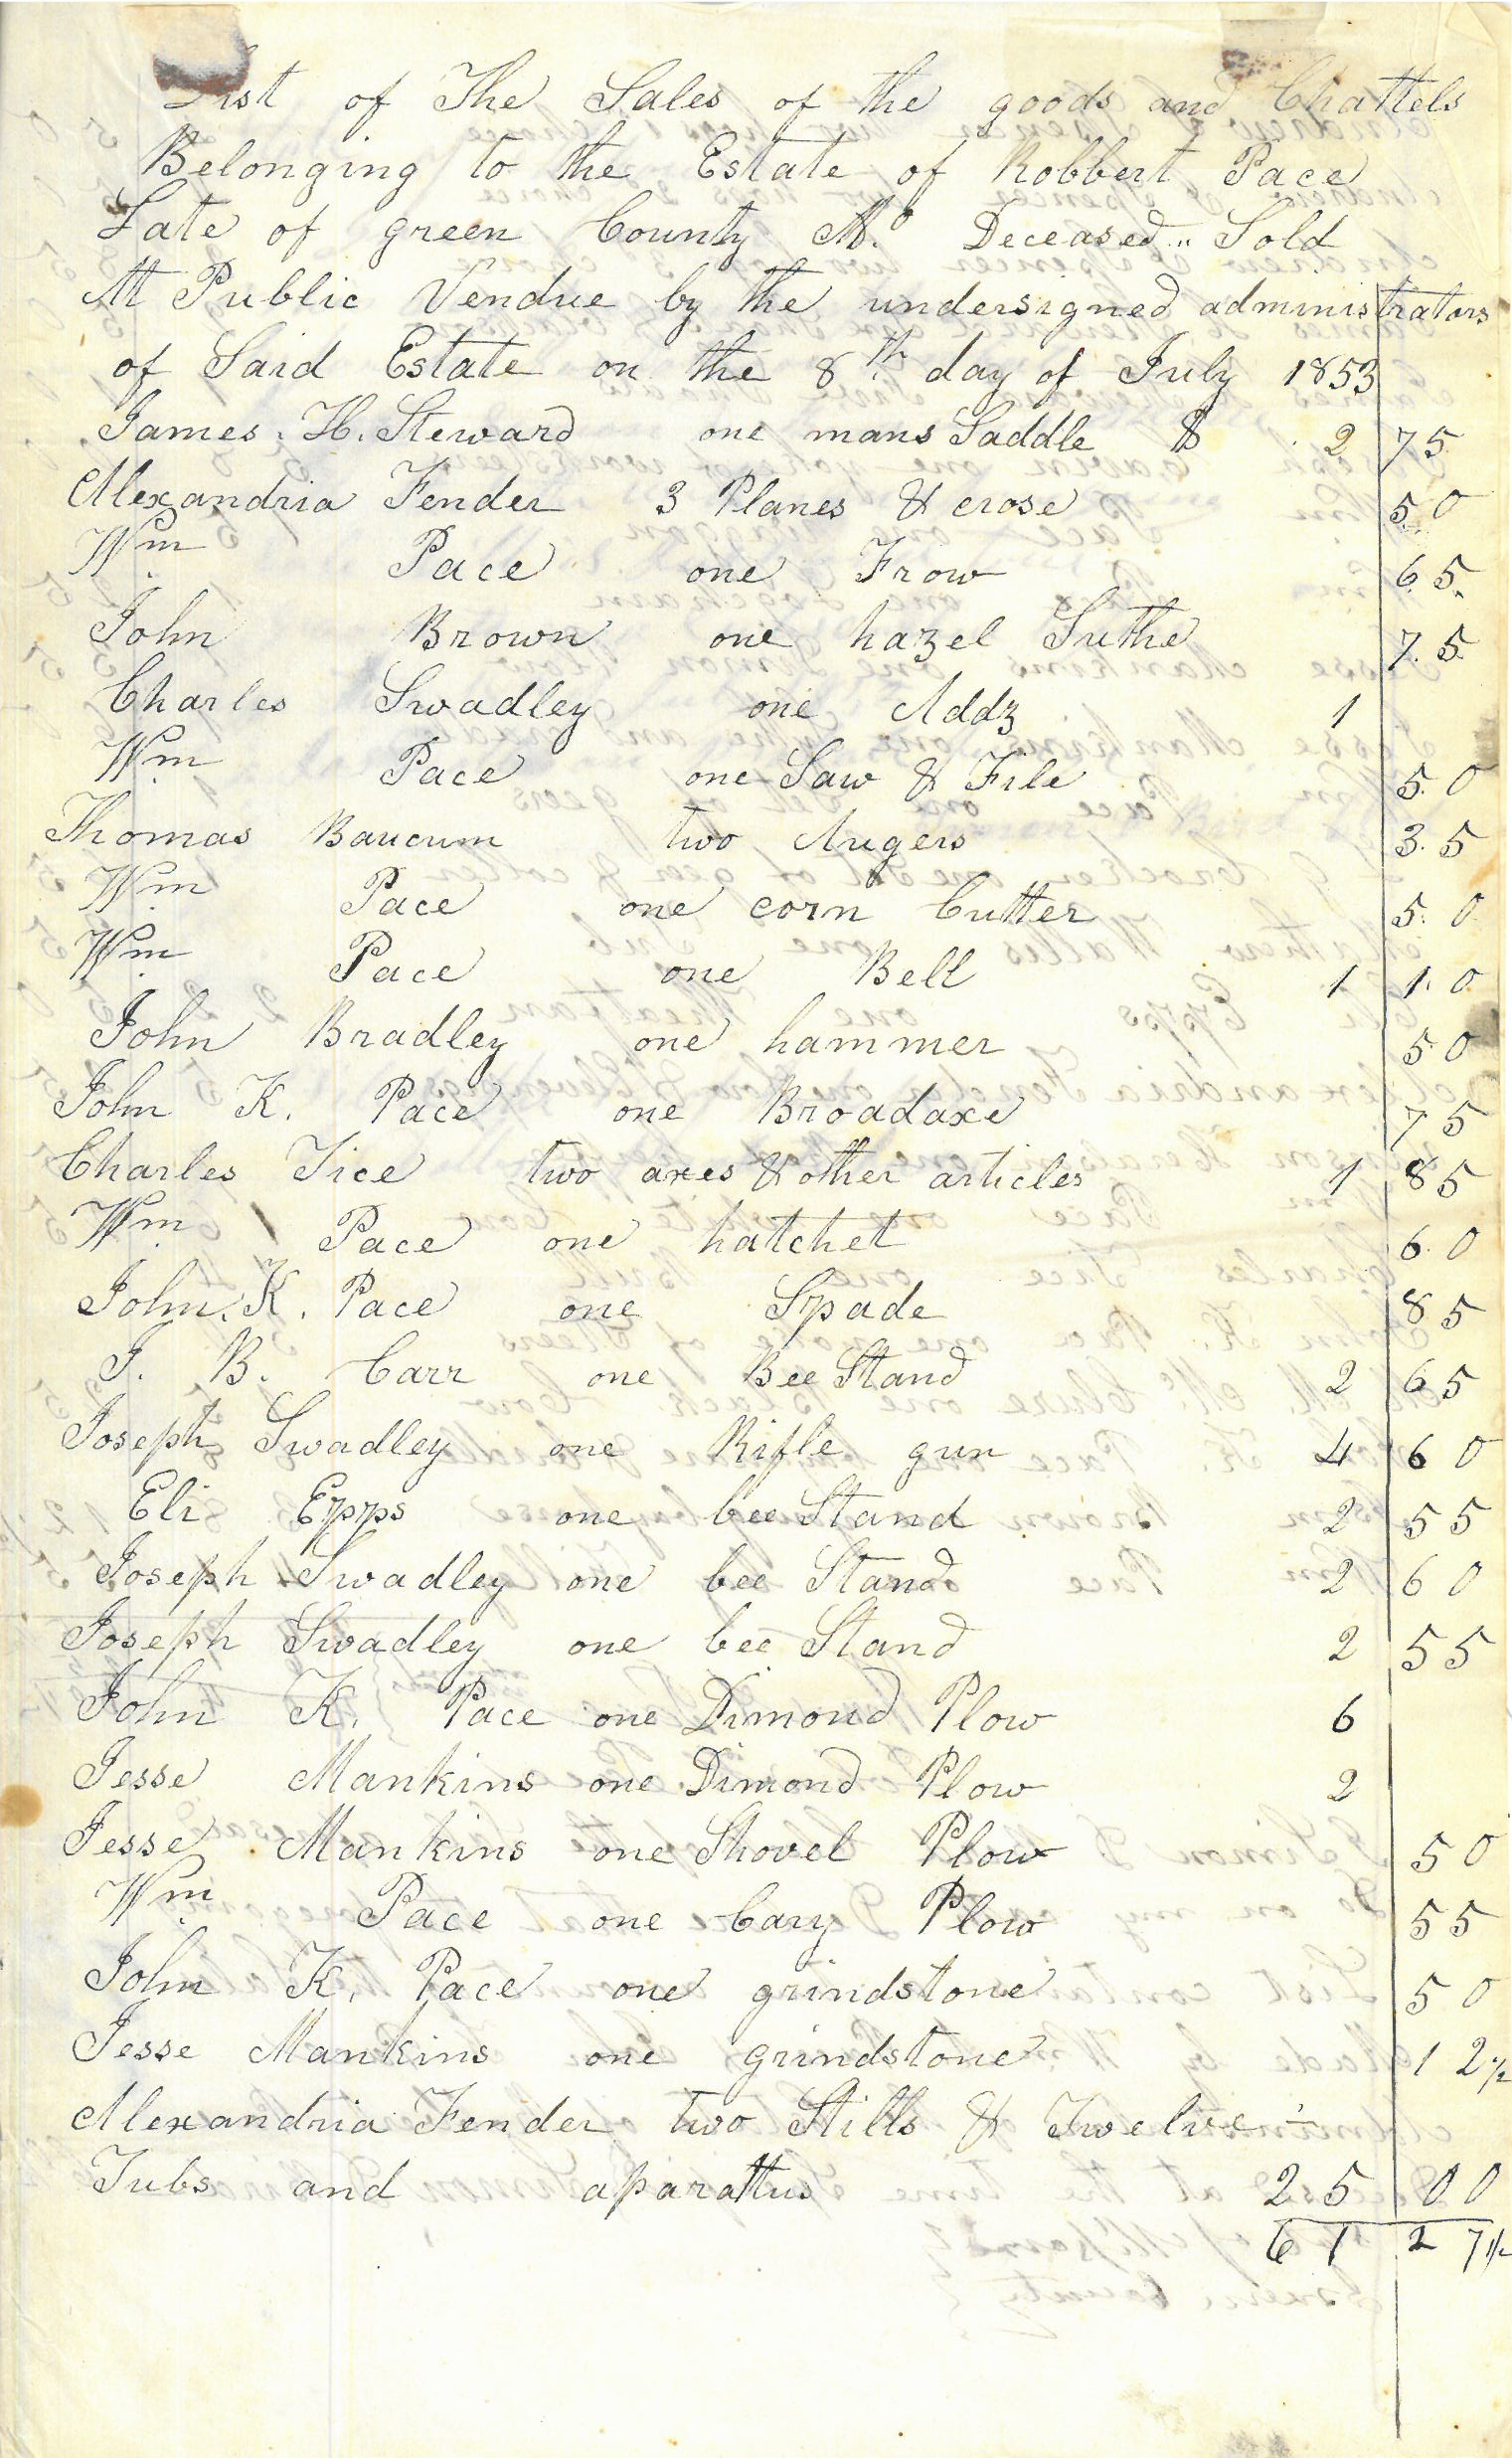 List of The Sales of the goods and Chattels
Belonging to the Estate of Robbert Pace
Late of green County Mo Deceased.. Sold
At Public Vendue by the undersigned administrators
of Said Estate on the 8th day of July 1853
James. H. Steward one mans Saddle $ 2 75
Alexandria Fender 3 Planes & crose 50
Wm Pace one Frow 65
John Brown one hazel Sithe 75
Charles Swadley one Addz 1
Wm Pace one Saw & File 50
Thomas Baucum two Augers 35
Wm Pace one corn Cutter 50
Wm Pace one Bell 1 10
John Bradley one hammer 50
John K. Pace one Broadaxe 75
Charles Tice two axes & other articles 1 85
Wm Pace one hatchet 60
John. K. Pace one Spade 85
J. B. Carr one Bee Stand 2 65
Joseph Swadley one Rifle gun 4 60
Eli Epps one bee Stand 2 55
Joseph Swadley one bee Stand 2 60
Joseph Swadley one bee Stand 2 55
John K. Pace one Dimond Plow 6
Jesse Mankins one Dimond Plow 2
Jesse Mankins one Shovel Plow 50
Wm Pace one Cary Plow 55
John K. Pace one grindstone 50
Jesse Mankins one grindstone 12 1/2
Alexandria Fender two Stills & Twelve
Tubs and aparattus 25 00
61 27 1/2